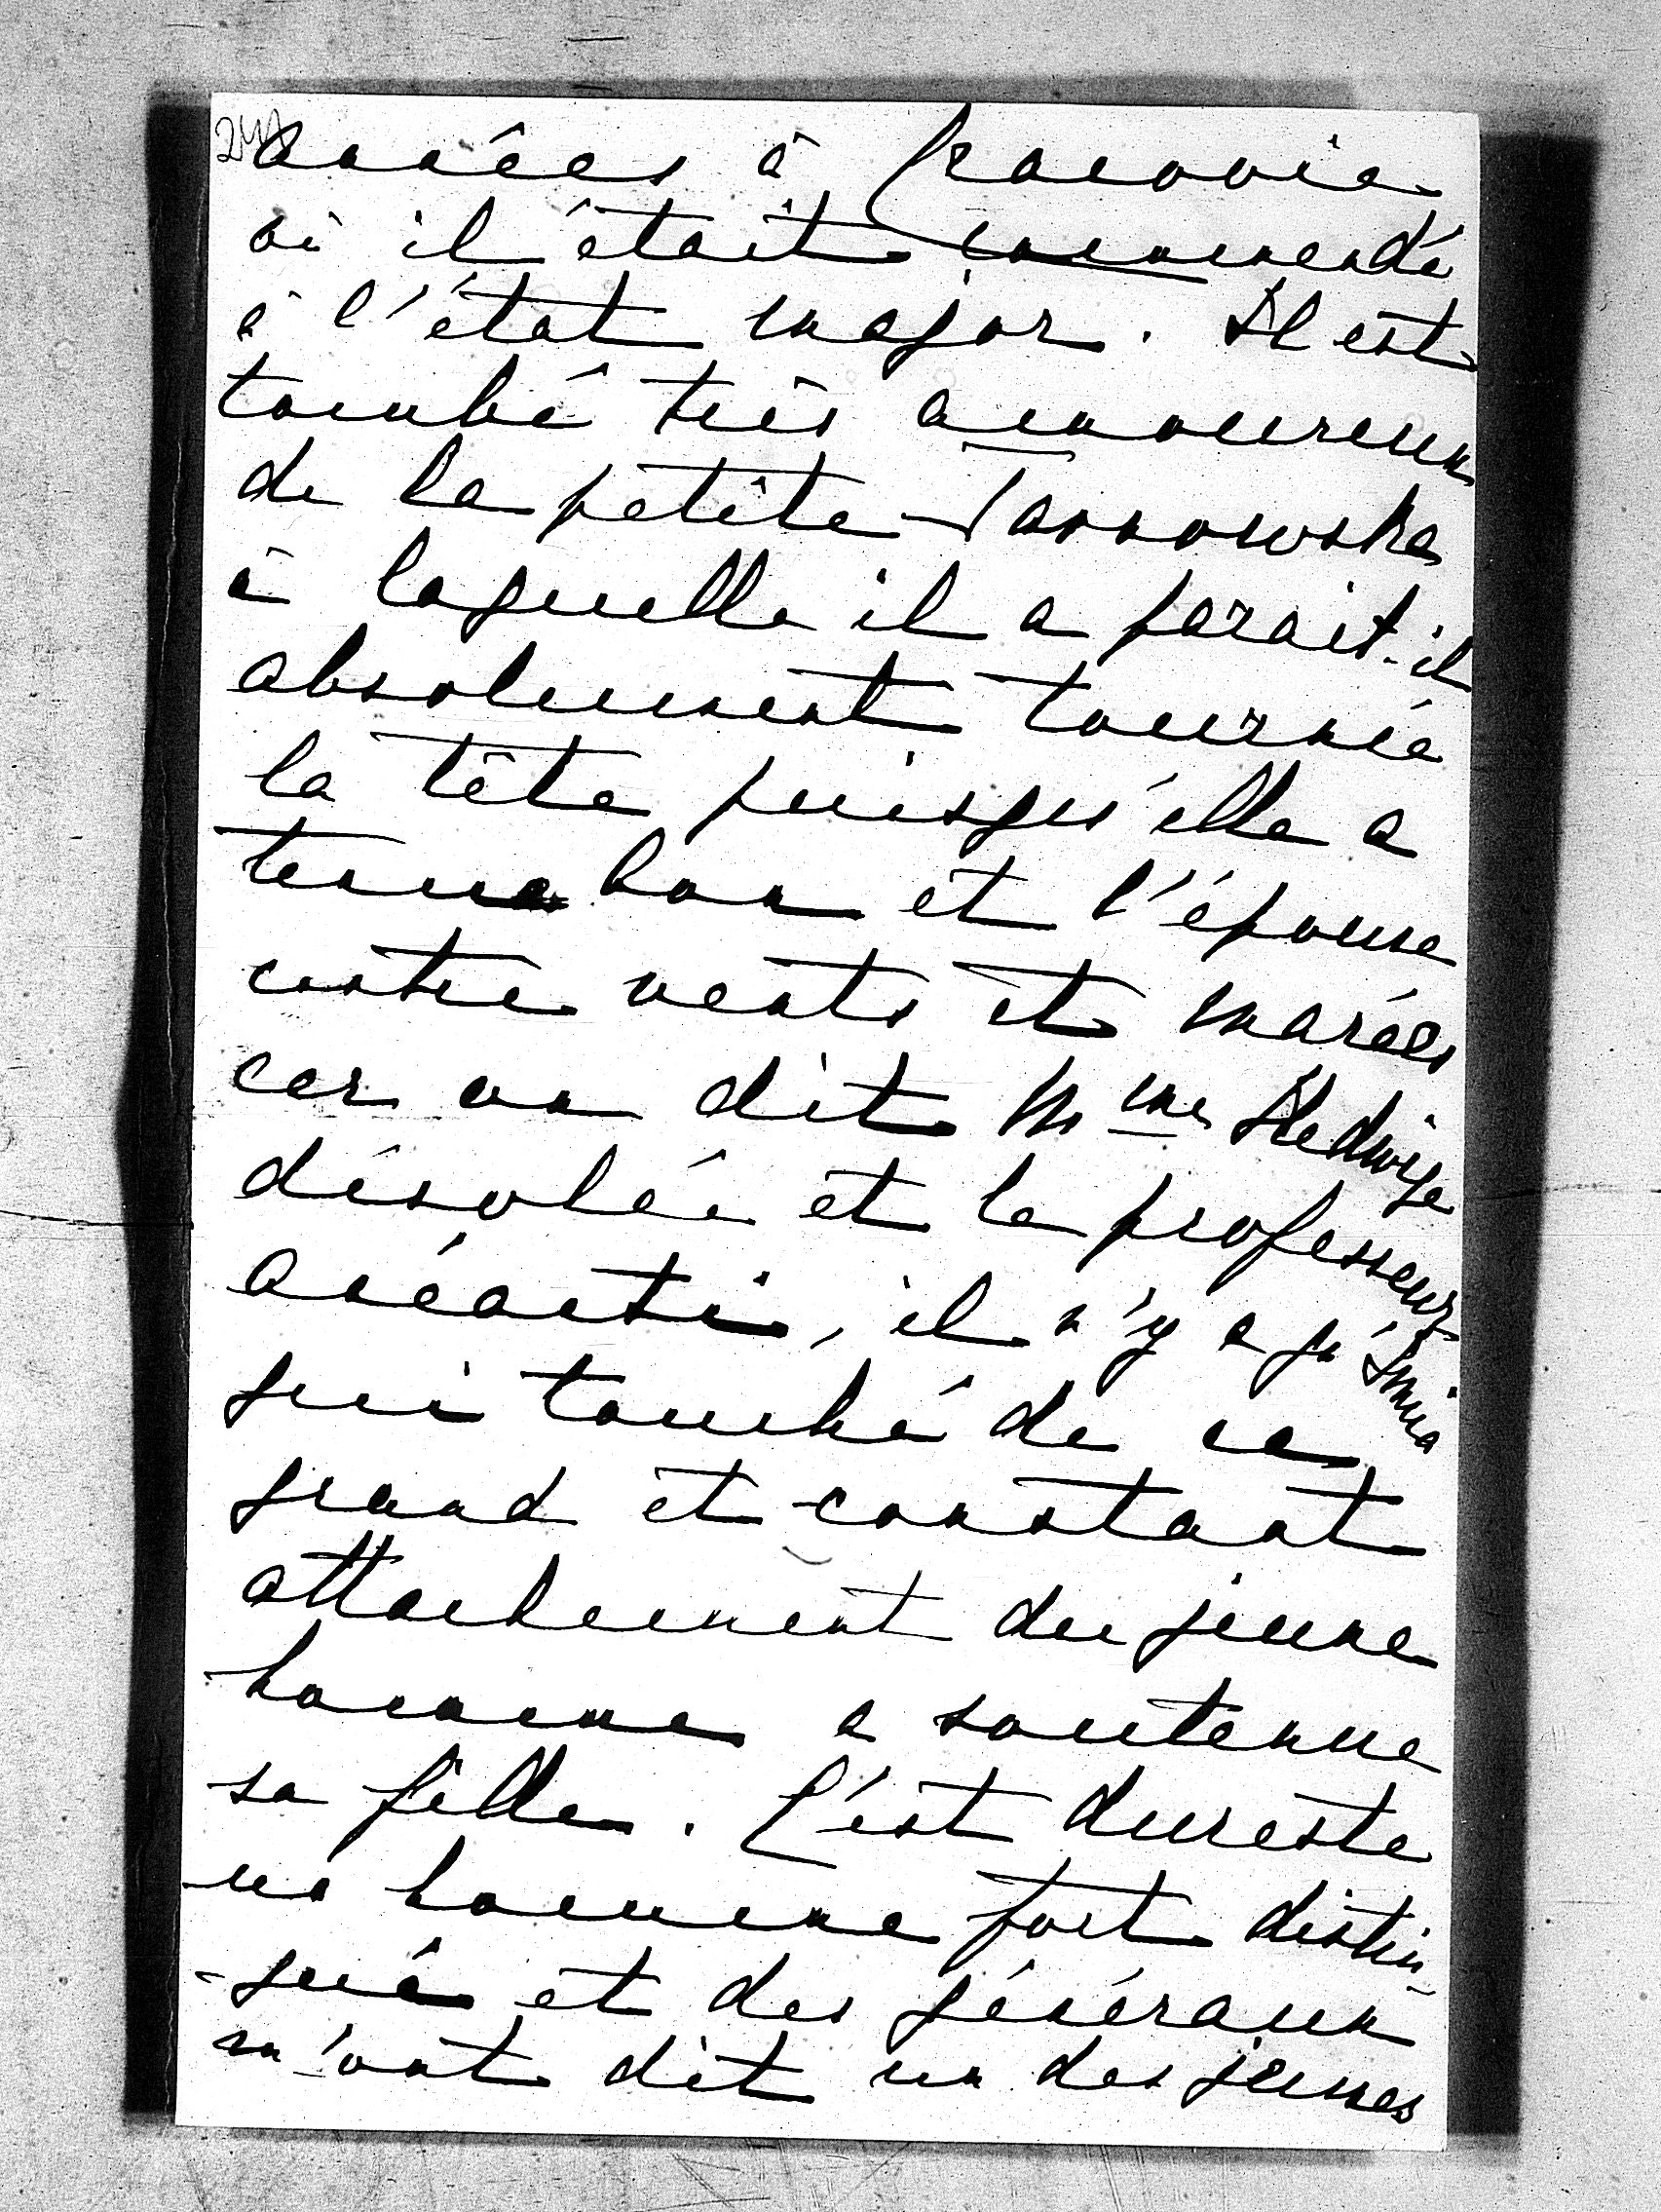 années à Cracovie
où il était commendé
à l'état major. Il est
tombé très amoureux
de la petite Tarnowska
à laquelle il a parait-il
absolument tournée
la tête puisqu'elle a
tenue bon et l'épouse
contre vents et marées
car on dit Mme Hedwige
désolée et le professeur
anéanti, il n'y a qu'
qui touché de ce
grand et constant
attachement du jeune
homme a soutenue
sa fille. C'est dureste
un homme fort distin-
-gué et des généraux
m'ont dit un des jeunes